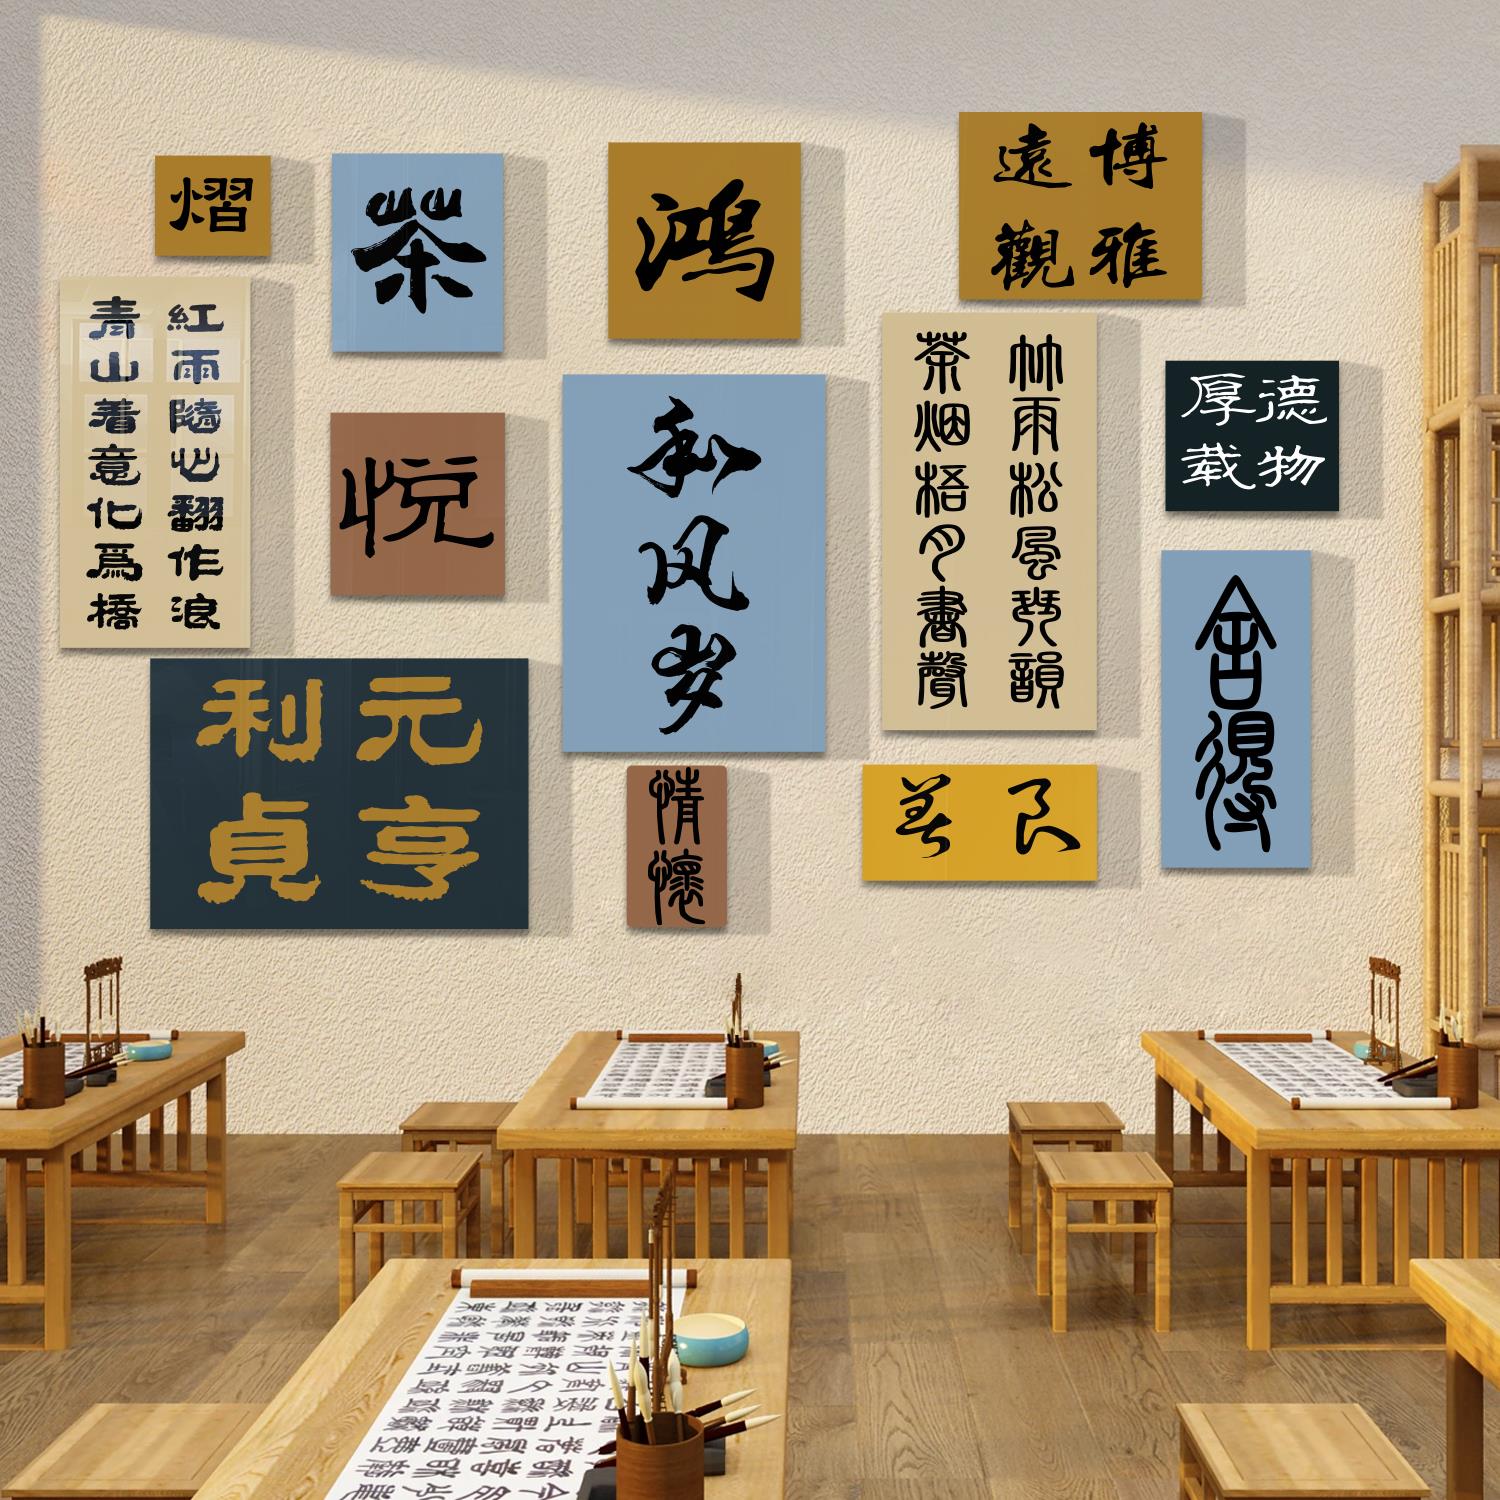 熠
茶
鴻
博雅
遠觀
紅雨隨心翻作浪
青山着意化爲橋
悦
和风岁
竹雨松風琴韻
茶烟梧月書聲
厚德
载物
元亨
利貞
情懷
善良
舍得